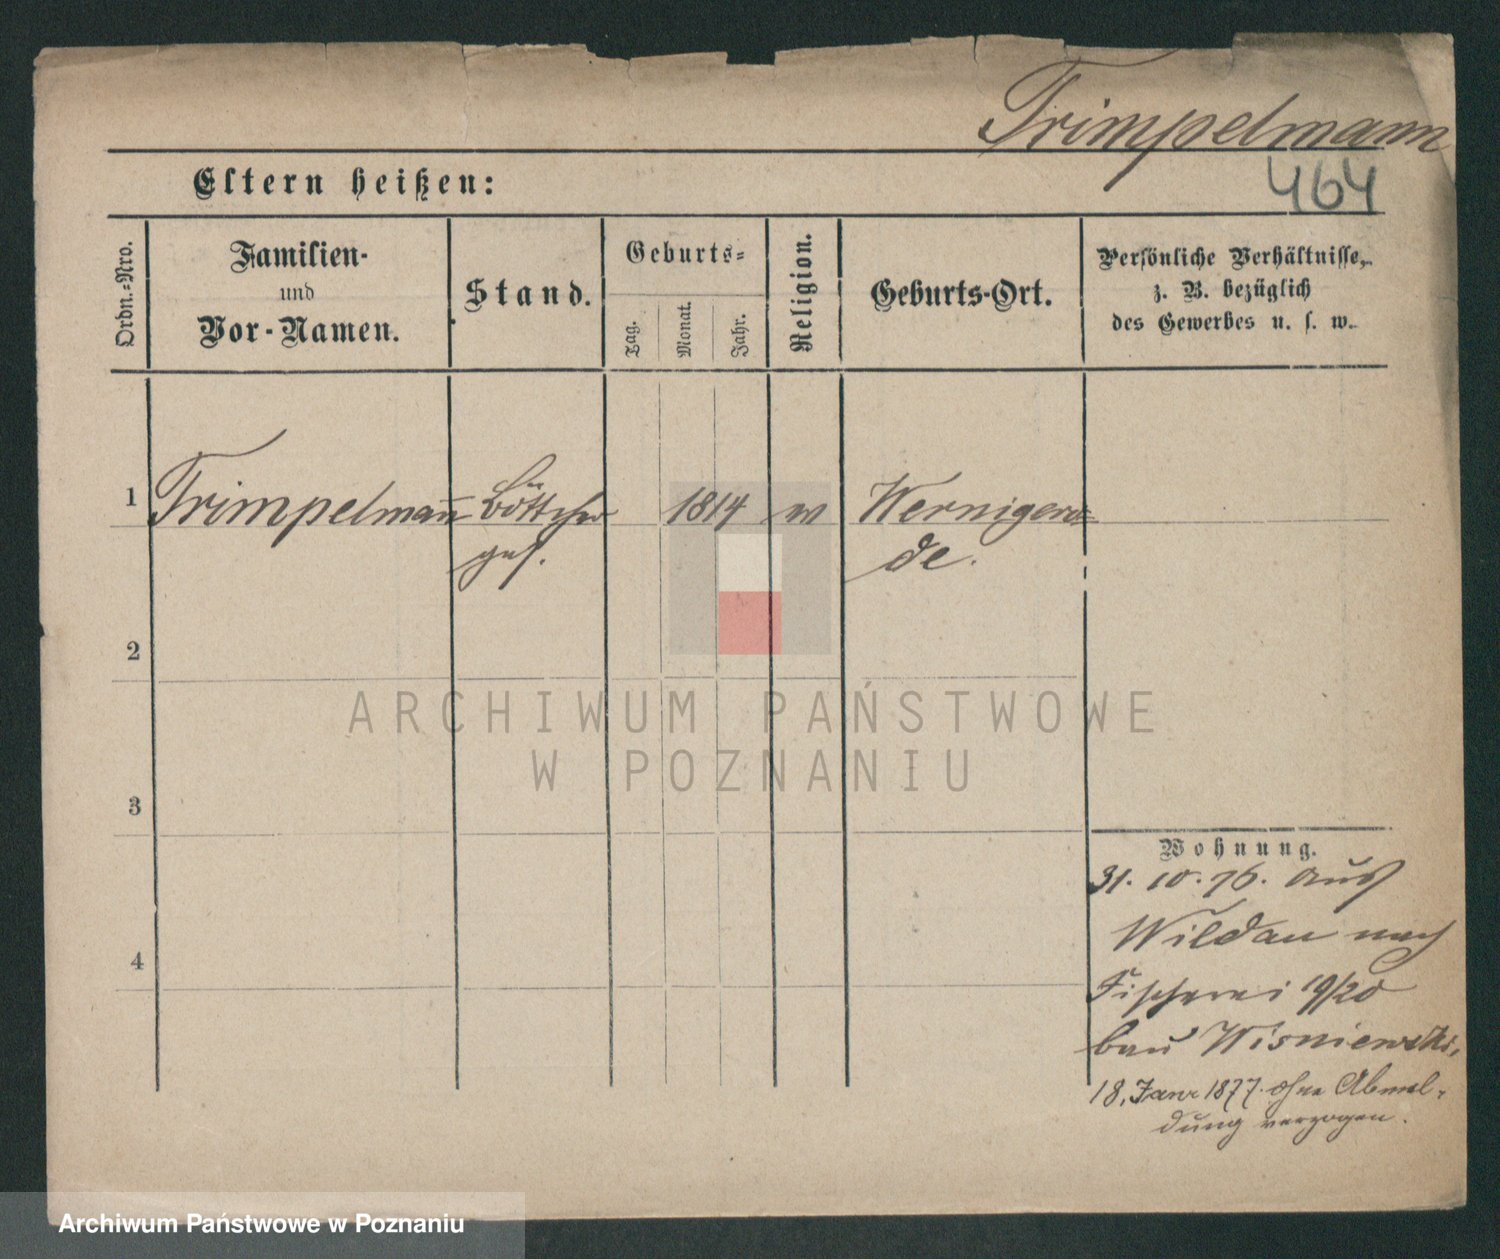 Trimpelmann
464
Eltern heißen:
Ordn.=Nro.
Familien-
und
Vor-Namen.
Stand.
Geburts=
Tag.
Monat.
Jahr.
Religion.
Geburts-Ort.
Persönliche Verhältnisse,
z. B. bezüglich
des Gewerbes u. s. w.
1 Trimpelmañ Böttcher 1814 Wernigero=
ges. de.
2
3
4
Wohnung.
31. 10. 76. aus
Wildau nach
Fischerei 19/20
bau Wisniewski,
18. Janr 1877. ohne Abmel-
dung verzogen.
ARCHIWUM PAŃSTWOWE
W POZNANIU
Archiwum Państwowe w Poznaniu